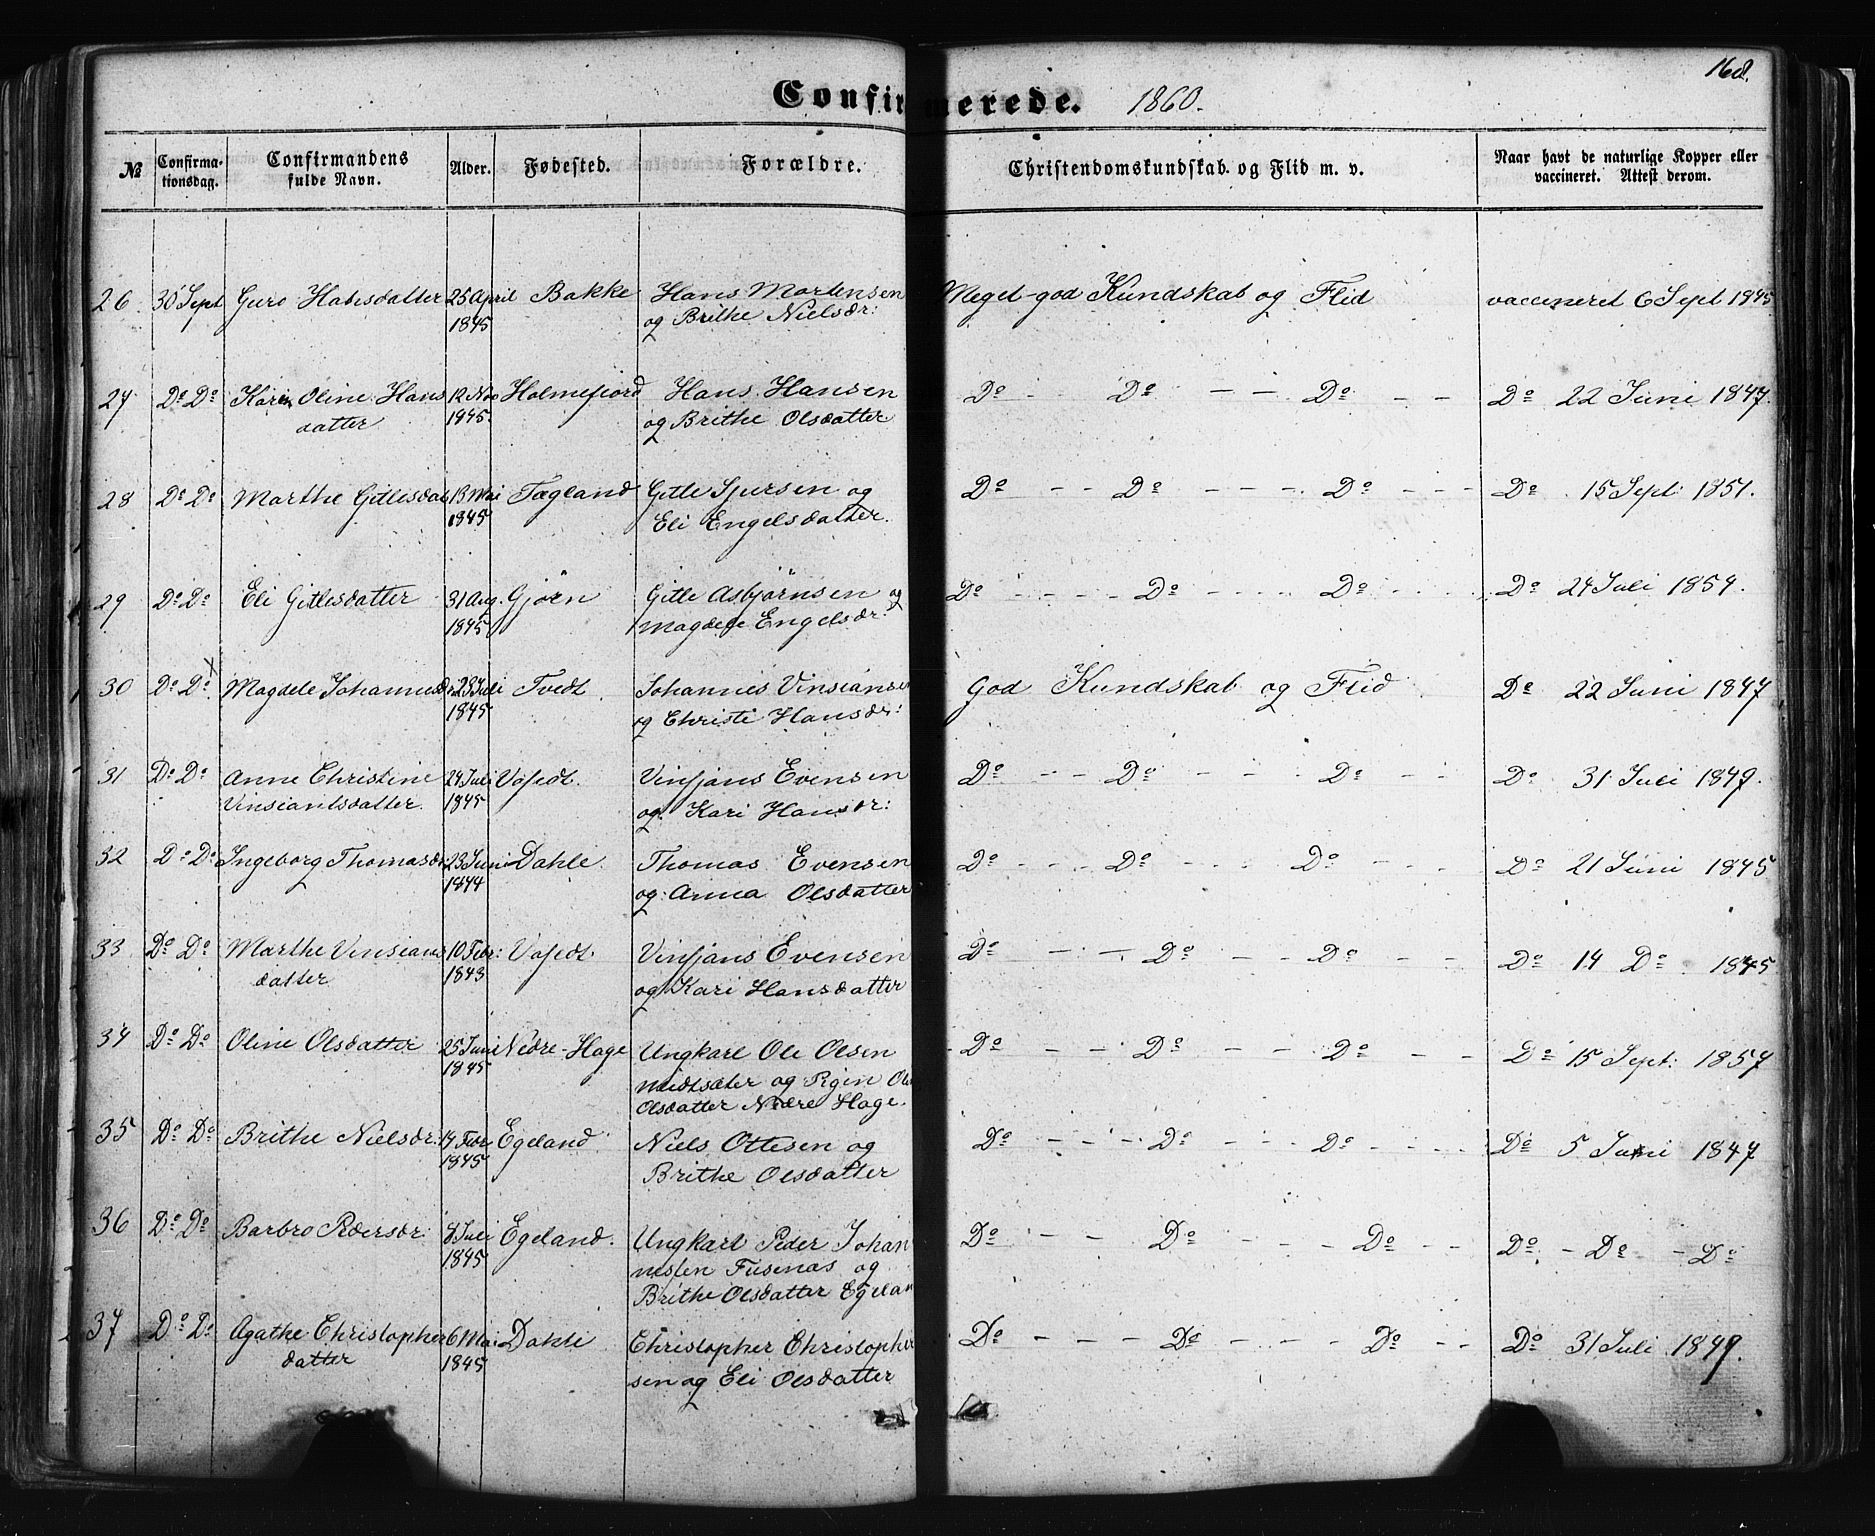 168.
Confirmerede. 1860.
№ Confirma- Confirmandens Alder. Fødested. Forældre. Christendomskundskab og Flid m. v. Naar havt de naturlige Kopper eller
tionsdag. fulde Navn. vaccineret. Attest derom.
26 30 Sept Guro Hansdatter 25 April Bakke Hans Mortensen Meget god Kundskab og Flid vaccineret 6 Sept 1845
1845 og Brithe Nielsdr:
27 Do Do Karen Oline Hans 12 Nov Holmefjord Hans Hansen Do Do - - Do - - Do 22 Juni 1847.
datter 1845. og Brithe Olsdatter
28 Do Do Marthe Gitlesdat 13 Mai Tægland Gitle Sjursen og Do - - Do - - - Do - - - Do 15 Sept: 1851.
1845 Eli Engelsdatter.
29 Do Do Eli Gitlesdatter 31 Aug. Gjøen Gitle Asbjørnsen og Do - - - - Do - - - - Do - - - - Do 24 Juli 1854.
1845 Magdele Engelsdr
30 Do Do X Magdele Johannesdr 23 Juli Tvedt. Johannes Vinsiansen God Kundskab og Flid Do 22 Juni 1847
1845 og Christi Hansdr:
31 Do Do Anne Christine 24 Juli Vafedt. Vinsjans Evensen Do - - Do - - - Do - - Do 31 Juli 1849.
Vinsiantsdatter. 1845 og Kari Hansdr:
32 Do Do Ingeborg Thomasdr: 23 Juni Dahle. Thomas Evensen Do - - - Do - - - Do - - - Do 21 Juni 1845
1844 og Anna Olsdatter
33 Do Do Marthe Vinsians 10 Febr: Vafedt. Vinsjans Evensen Do - - - Do - - Do - - Do 14 Do 1845
datter 1843 og Kari Hansdatter
34 Do Do Oline Olsdatter 25 Juni Nedre-Hage Ungkarl Ole Olsen Do - - - Do - - - Do - - Do 15 Sept: 1857
1845 Midtsæter og
Olsdatter Nedre Hage.
35 Do Do Brithe Nielsdr: 14 Febr Egeland Niels Ottesen og Do - - - Do - - - Do - - - Do 5 Juni 1847
1845 Brithe Olsdatter
36 Do Do Barbro Pedersdr: 8 Juli Egeland. Ungkarl Peder Johan Do - - Do - - - Do - - Do - Do - Do
1845 nesen Fusenæs og
Brithe Olsdatter Egelan
37 Do Do Agathe Christopher 6 Mai Dahle Christopher Christopher Do - - - Do - - - Do - - Do 31 Juli 1849.
datter 1845 sen og Eli Olsdatter